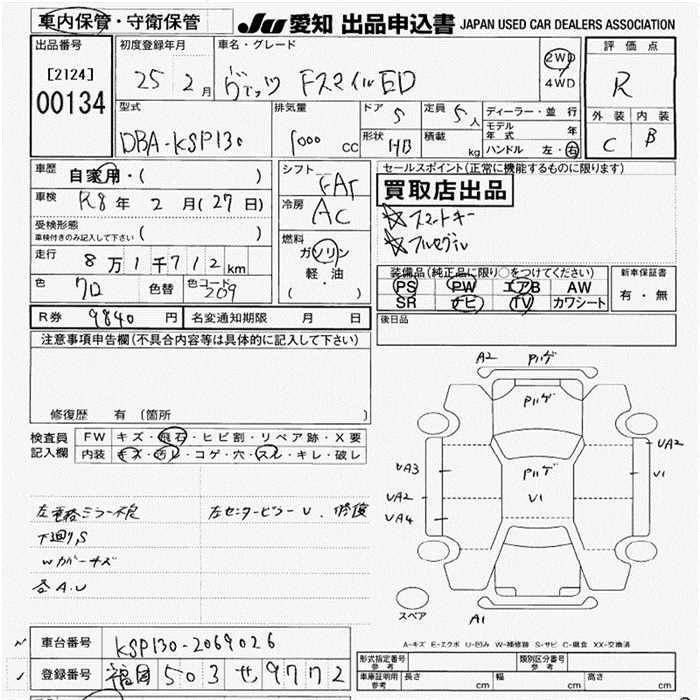 車内保管・守衛保管
JU 愛知 出品申込書 JAPAN USED CAR DEALERS ASSOCIATION
出品番号
[2124]
00134
初度登録年月
25 2月
車名・グレード
ヴィッツ FスマイルED
2WD
4WD
評価点
R
外装 内装
C B
型式
DBA-KSP130
排気量
1000 cc
ドア 5
形状 HB
定員 5人
積載 kg
ディーラー・並行
モデル年式 年
ハンドル 左・右
車歴
自家用・( )
車検 R8年 2月(27日)
受検形態
車検付きのみ記入して下さい ( )
走行 8万1千712km
色 クロ 色替 色コード 209
シフト
FAT
冷房
AC
燃料
ガソリン
軽・油
( ・ )
セールスポイント(正常に機能するものに限ります)
買取店出品
☆スマートキー
☆フルセグTV
装備品(純正品に限り○をつけてください)
PS PW エアB AW
SR ナビ TV カワシート
新車保証書
有・無
R券 9840円 名変通知期限 月 日
後日品
注意事項申告欄(不具合内容等は具体的に記入して下さい)
修復歴 有 (箇所 )
検査員
記入欄
FW キズ・飛石・ヒビ割・リペア跡・X要
内装 キズ・汚レ・コゲ・穴・スレ・キレ・破レ
左電格ミラー不良 左センターピラーU、修復
下廻りS
Wカバーキズ
各A.U
A2 Pハゲ
Pハゲ
Pハゲ
U1
UA3
UA2
UA4
UA2
U1
A1
スペア
A-キズ E-エクボ U-凹み W-補修跡 S-サビ C-腐食 XX-交換済
車台番号 KSP130-2069026
登録番号 福岡 503 せ 9772
形式指定番号 参考
類別区分番号 参考
車庫証明用 参考 長さ cm 幅 cm 高さ cm